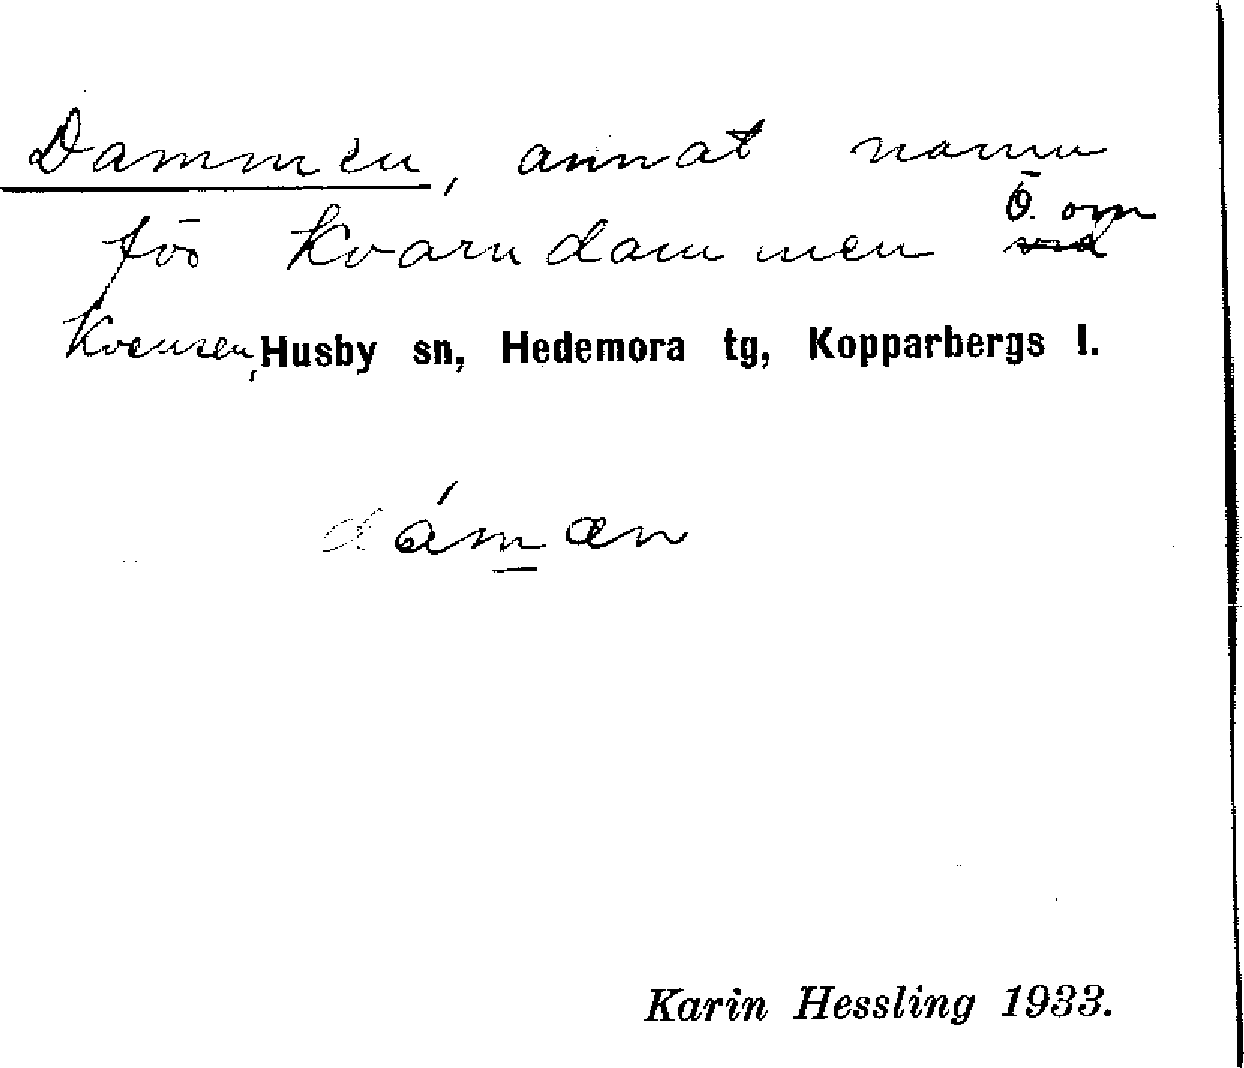 Dammen, annat namn
för Kvarndammen Ö. om
Kvensen, Husby sn, Hedemora tg, Kopparbergs l.
dámæn
Karin Hessling 1933.